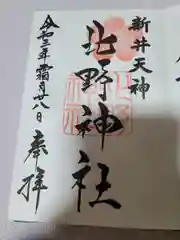 新井天神
北野神社
令和三年霜月廿八日
奉拝